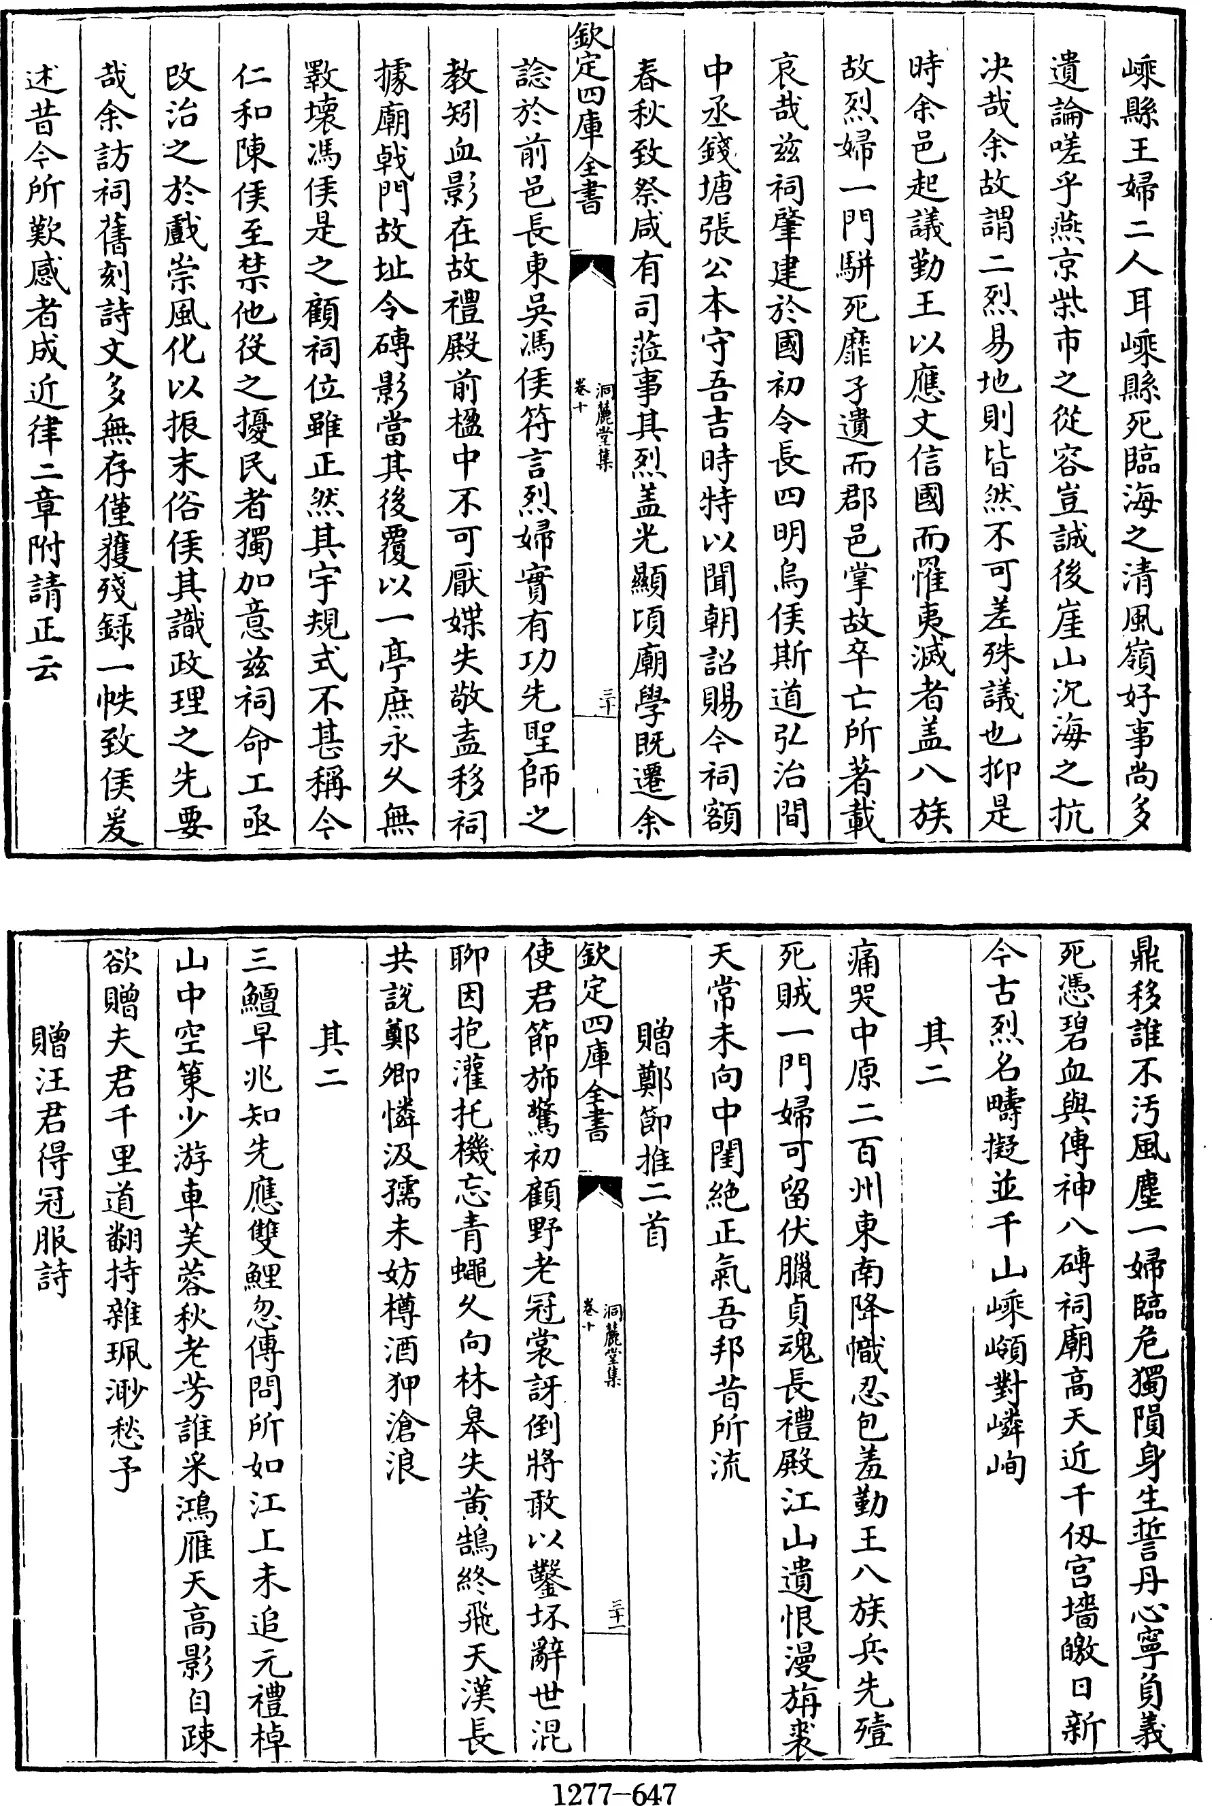 嵊縣王婦二人耳嵊縣死臨海之清風嶺好事尚多
遺論嗟乎燕京柴市之從容豈誠後崖山沉海之抗
决哉余故謂二烈易地則皆然不可差殊議也抑是
時余邑起議勤王以應文信國而罹夷滅者盖八族
故烈婦一門駢死靡孑遺而郡邑掌故卒亡所著載
哀哉兹祠肇建於國初令長四明烏侯斯道弘治間
中丞錢塘張公本守吾吉時特以聞朝詔賜今祠額
春秋致祭咸有司蒞事其烈盖光顯頃廟學既遷余
欽定四庫全書
洞麓堂集
卷十
三十
諗於前邑長東吳馮侯符言烈婦實有功先聖師之
教矧血影在故禮殿前楹中不可厭媟失敬盍移祠
據廟戟門故址令磚影當其後覆以一亭庶永久無
斁壞馮侯是之顧祠位雖正然其宇規式不甚稱今
仁和陳侯至禁他役之擾民者獨加意兹祠命工亟
改治之於戲崇風化以振末俗侯其識政理之先要
哉余訪祠舊刻詩文多無存僅獲殘録一帙致侯爰
述昔今所歎感者成近律二章附請正云
鼎移誰不汚風塵一婦臨危獨隕身生誓丹心寧負義
死憑碧血與傳神八磚祠廟高天近千仭宫墻皦日新
今古烈名疇擬並千山嵊嶺對嶙峋
其二
痛哭中原二百州東南降幟忍包羞勤王八族兵先殪
死賊一門婦可留伏臘貞魂長禮殿江山遺恨漫旃裘
天常未向中閨絶正氣吾邦昔所流
贈鄭節推二首
欽定四庫全書
洞麓堂集
卷十
三十一
使君節斾驚初顧野老冠裳訝倒將敢以鑿坏辭世混
聊因抱灌托機忘青蠅久向林臯失黄鵠終飛天漢長
共說鄭卿憐汲孺未妨樽酒狎滄浪
其二
三鱣早兆知先應雙鯉忽傳問所如江上未追元禮棹
山中空策少游車芙蓉秋老芳誰采鴻雁天高影自疎
欲贈夫君千里道翻持雜珮渺愁予
贈汪君得冠服詩
1277-647